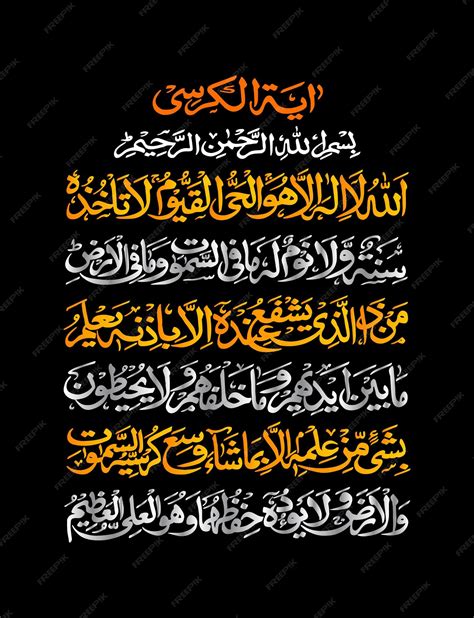 اٰية الكرسي
بِسْمِ اللهِ الرَّحْمٰنِ الرَّحِيْمِ
اَللهُ لَا اِلٰهَ اِلَّا هُوَ الْحَيُّ الْقَيُّوْمُ لَا تَاْخُذُهٗ
سِنَةٌ وَّلَا نَوْمٌ لَهٗ مَا فِي السَّمٰوٰتِ وَمَا فِي الْاَرْضِ
مَنْ ذَا الَّذِيْ يَشْفَعُ عِنْدَهٗ اِلَّا بِاِذْنِهٖ يَعْلَمُ
مَا بَيْنَ اَيْدِيْهِمْ وَمَا خَلْفَهُمْ وَلَا يُحِيْطُوْنَ
بِشَيْءٍ مِّنْ عِلْمِهٖ اِلَّا بِمَا شَآءَ وَسِعَ كُرْسِيُّهُ السَّمٰوٰتِ
وَالْاَرْضَ وَلَا يَـُٔوْدُهٗ حِفْظُهُمَا وَهُوَ الْعَلِيُّ الْعَظِيْمُ
FREEPIK